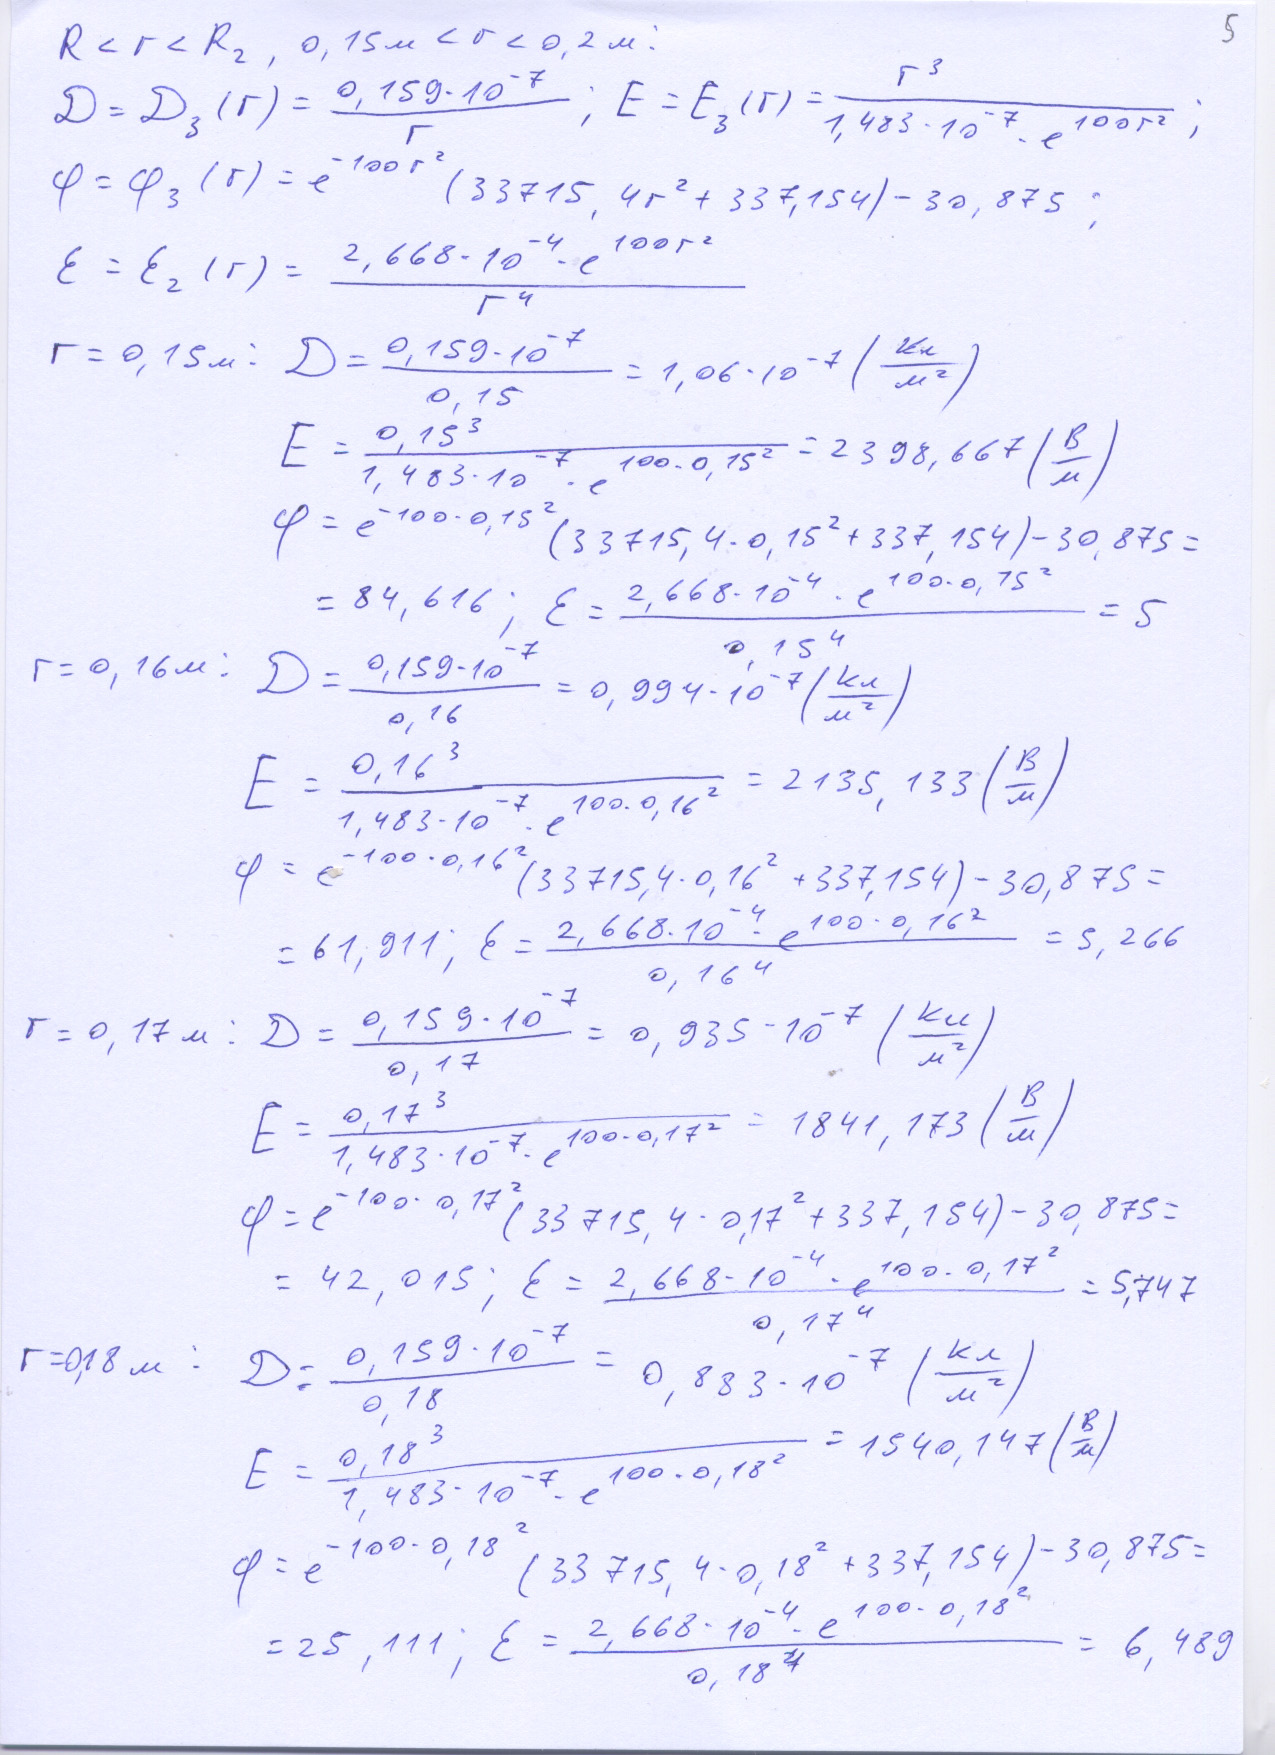 5
R < r < R₂, 0,15м < r < 0,2м:
D = D₃(r) = 0,159·10⁻⁷/r ; E = E₃(r) = r³/(1,483·10⁻⁷·e^(100r²)) ;
φ = φ₃(r) = e^(-100r²) (33715,4r² + 337,154) - 30,875 ;
ε = ε₂(r) = 2,668·10⁻⁴·e^(100r²)/r⁴
r = 0,15м: D = 0,159·10⁻⁷/0,15 = 1,06·10⁻⁷ (Кл/м²)
E = 0,15³/(1,483·10⁻⁷·e^(100·0,15²)) = 2398,667 (В/м)
φ = e^(-100·0,15²) (33715,4·0,15² + 337,154) - 30,875 =
= 84,616 ; ε = 2,668·10⁻⁴·e^(100·0,15²)/0,15⁴ = 5
r = 0,16м: D = 0,159·10⁻⁷/0,16 = 0,994·10⁻⁷ (Кл/м²)
E = 0,16³/(1,483·10⁻⁷·e^(100·0,16²)) = 2135,133 (В/м)
φ = e^(-100·0,16²) (33715,4·0,16² + 337,154) - 30,875 =
= 61,911 ; ε = 2,668·10⁻⁴·e^(100·0,16²)/0,16⁴ = 5,266
r = 0,17м: D = 0,159·10⁻⁷/0,17 = 0,935·10⁻⁷ (Кл/м²)
E = 0,17³/(1,483·10⁻⁷·e^(100·0,17²)) = 1841,173 (В/м)
φ = e^(-100·0,17²) (33715,4·0,17² + 337,154) - 30,875 =
= 42,015 ; ε = 2,668·10⁻⁴·e^(100·0,17²)/0,17⁴ = 5,747
r = 0,18м: D = 0,159·10⁻⁷/0,18 = 0,883·10⁻⁷ (Кл/м²)
E = 0,18³/(1,483·10⁻⁷·e^(100·0,18²)) = 1540,147 (В/м)
φ = e^(-100·0,18²) (33715,4·0,18² + 337,154) - 30,875 =
= 25,111 ; ε = 2,668·10⁻⁴·e^(100·0,18²)/0,18⁴ = 6,489